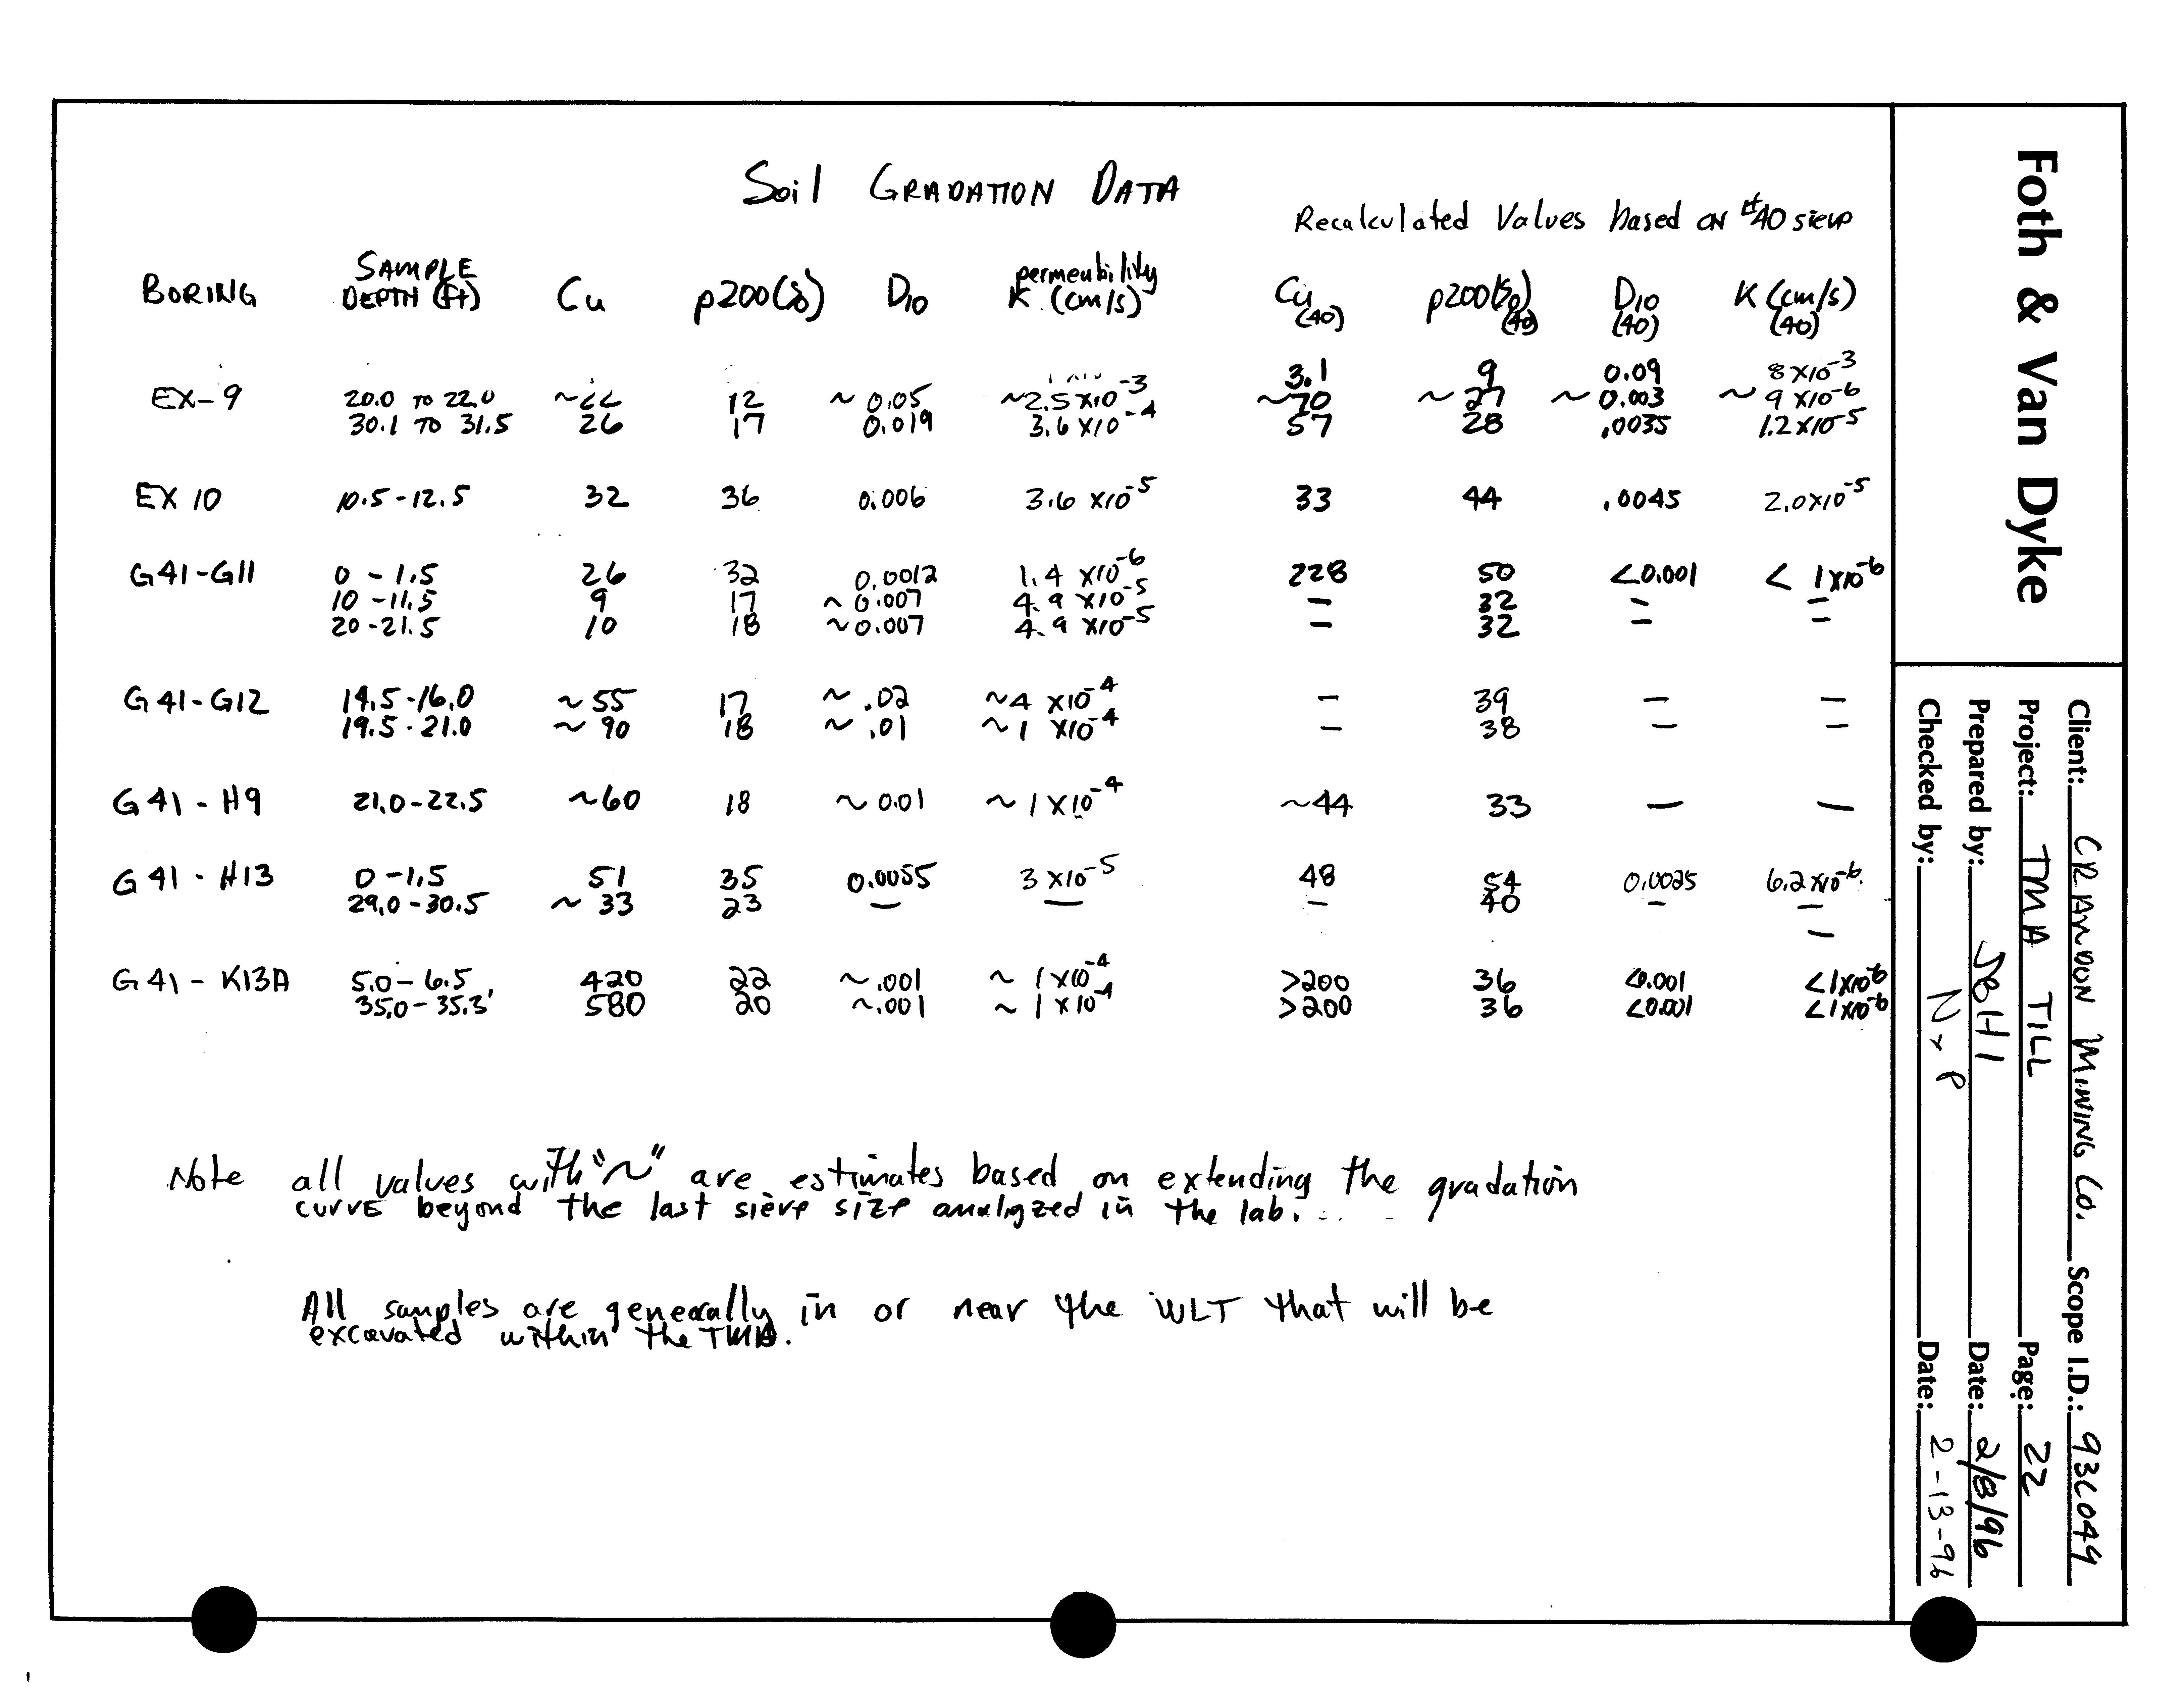 Soil GRADATION DATA
Recalculated Values based on #40 sieve
BORING SAMPLE DEPTH (ft) Cu p200(%) D10 permeability K (cm/s) Cu (40) p200(%) (40) D10 (40) K (cm/s) (40)
3.1 9 0.09 8x10-3
EX-9 20.0 TO 22.0 ~22 12 ~ 0.05 ~2.5x10-3 ~70 ~ 27 ~ 0.003 ~ 9x10-6
30.1 TO 31.5 26 17 0.019 3.6x10-4 57 28 .0035 1.2x10-5
EX 10 10.5-12.5 32 36 0.006 3.6 x10-5 33 44 .0045 2.0x10-5
G41-G11 0 - 1.5 26 32 0.0012 1.4 x10-6 228 50 <0.001 < 1x10-6
10 - 11.5 9 17 ~ 0.007 4.9 x10-5 — 32 — —
20 - 21.5 10 18 ~0.007 4.9 x10-5 — 32 — —
G41-G12 14.5-16.0 ~ 55 17 ~ .02 ~4 x10-4 — 39 — —
19.5-21.0 ~ 90 18 ~ .01 ~1 x10-4 — 38 — —
G41 - H9 21.0-22.5 ~60 18 ~ 0.01 ~ 1x10-4 ~44 33 — —
G41 - H13 0 -1.5 51 35 0.0055 3 x10-5 48 54 0.0025 6.2x10-6
29.0-30.5 ~ 33 23 — — — 40 — —
—
G41 - K13A 5.0 - 6.5 420 22 ~.001 ~ 1x10-4 >200 36 <0.001 <1x10-6
35.0-35.3' 580 20 ~.001 ~ 1x10-4 >200 36 <0.001 <1x10-6
Note all values with "~" are estimates based on extending the gradation
curve beyond the last sieve size analyzed in the lab.
All samples are generally in or near the WLT that will be
excavated within the TMA.
Foth & Van Dyke
Client: CRANDON MINING Co. Scope I.D.: 93C049
Project: TMA TILL Page: 22
Prepared by: JBH1 Date: 2/8/96
Checked by: NxP Date: 2-13-96